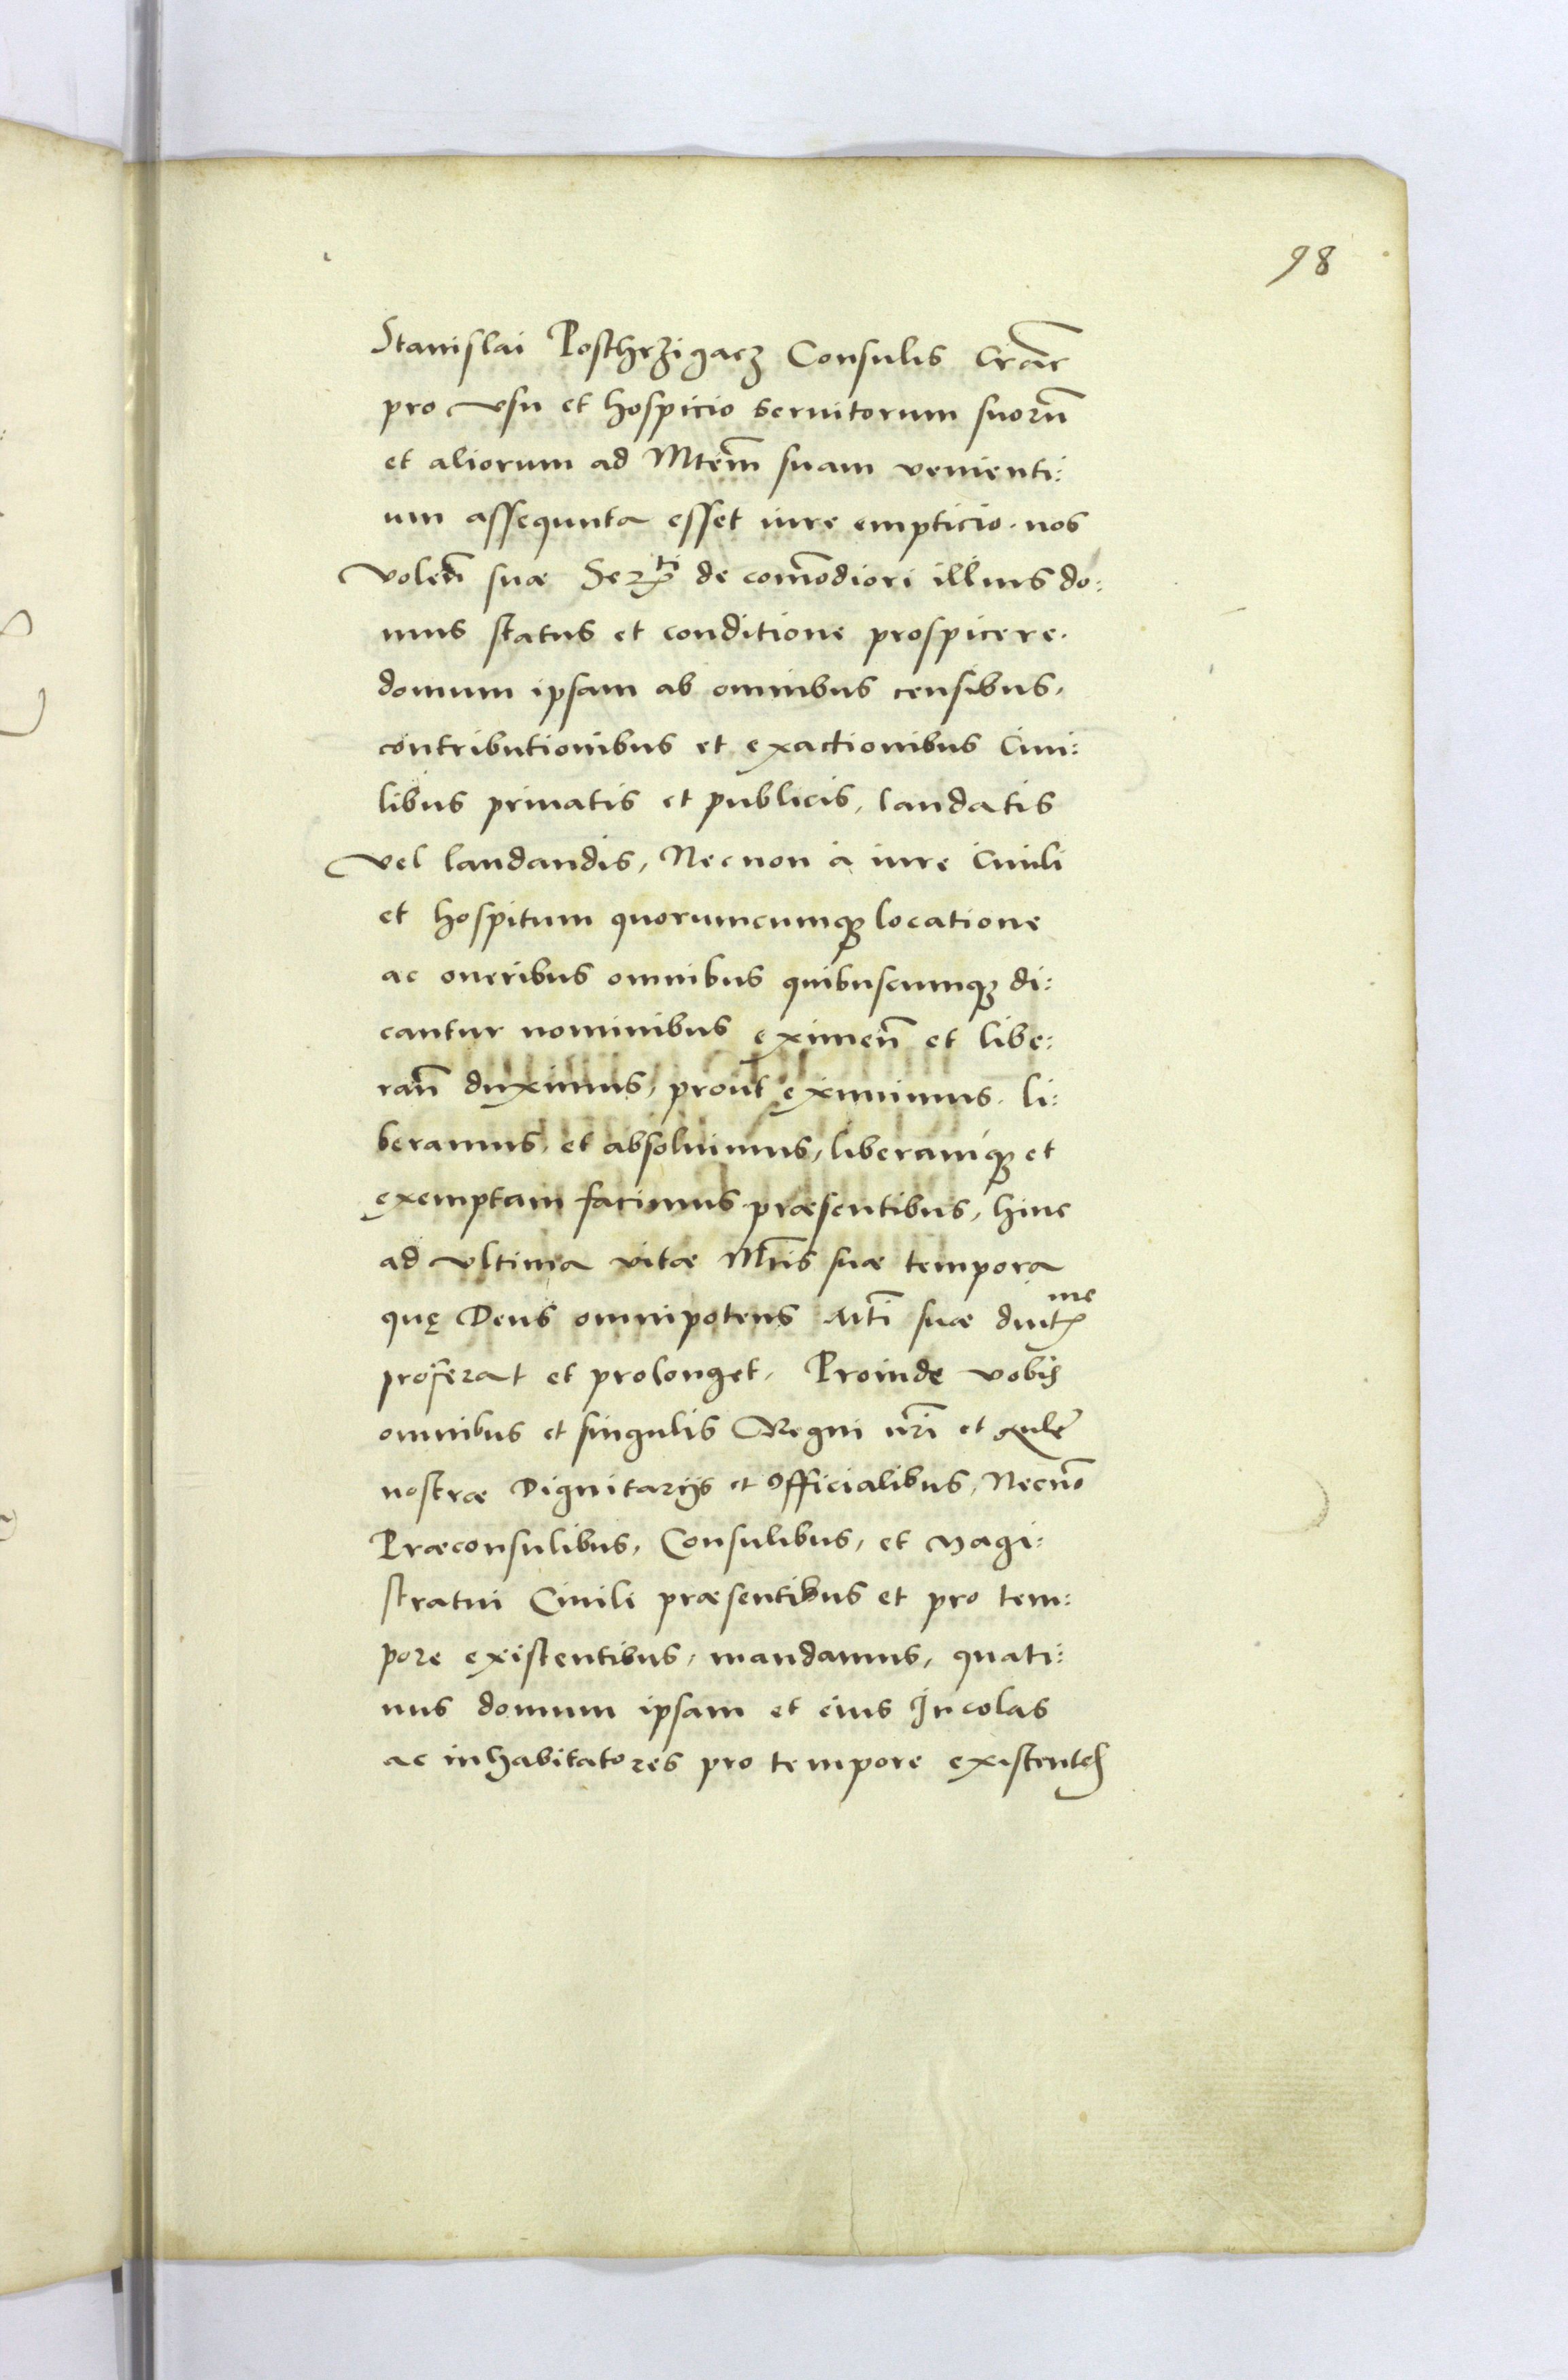 98
Stanislai Poschrzigacz Consulis Crac̃
pro vsu et hospicio seruitorum suorũ
et aliorum ad Mtem̃ suam venienti:
um assequuta esset iure empticio. nos
volen̄ suæ Serti de com̃odiori illius do:
mus status et conditione prospicere.
domum ipsam ab omnibus censibus,
contributionibus et exactionibus Ciui:
libus priuatis et publicis, laudatis
vel laudandis, Necnon à iure Ciuili
et hospitum quorumcumq locatione
ac oneribus omnibus quibuscumq di:
cantur nominibus eximen̄ et libe:
ran̄ duximus, prout eximimus. li:
beramus, et absoluimus, liberamq et
exemptam facimus præsentibus, hinc
ad vltima vitæ Mtis̃ suæ tempora
quę Deus omnipotens Mti̇̃ suæ diutme
proferat et prolonget. Proinde vobis
omnibus et singulis Regni nr̃i et Aulę
nostræ Dignitarijs et Officialibus, Necnõ
Præconsulibus, Consulibus, et Magi:
stratui Ciuili præsentibus et pro tem:
pore existentibus, mandamus, quati:
nus domum ipsam et eius Incolas
ac inhabitatores pro tempore existentes